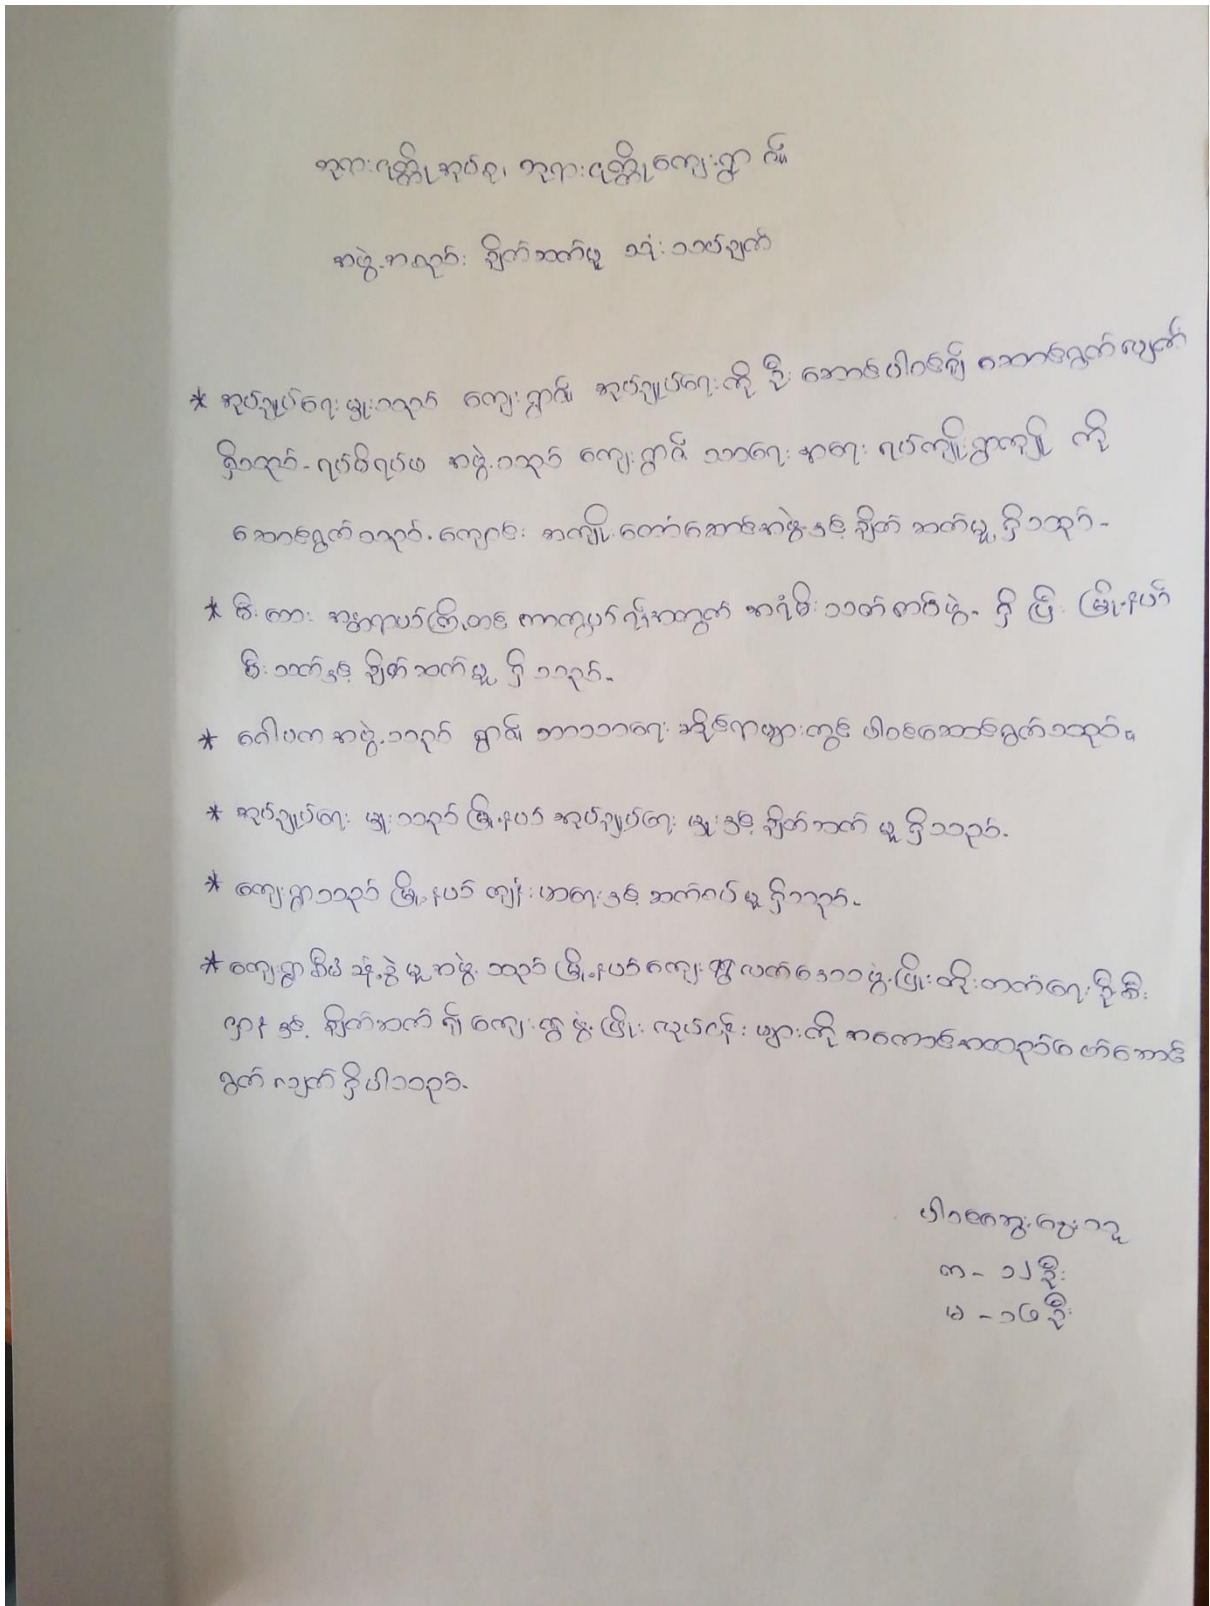 ဘုရားငုတ္တိုအုပ်စု၊ ဘုရားငုတ္တိုကျေးရွာ ၏
အဖွဲ့အစည်း ချိတ်ဆက်မှု သုံးသပ်ချက်
* အုပ်ချုပ်ရေးမှူးသည် ကျေးရွာ၏ အုပ်ချုပ်ရေးကို ဦးဆောင်ပါဝင်၍ ဆောင်ရွက်လျက်
ရှိသည်။ ရပ်မိရပ်ဖ အဖွဲ့သည် ကျေးရွာ၏ သာရေး နာရေး ရပ်ကျိုးရွာကျိုး ကို
ဆောင်ရွက်သည်။ ကျောင်း အကျိုးတော်ဆောင်အဖွဲ့နှင့် ချိတ်ဆက်မှု ရှိသည်။
* မီးဘေး အန္တရာယ်ကြိုတင် ကာကွယ်ရန်အတွက် အရံမီးသတ်တပ်ဖွဲ့ ရှိပြီး မြို့နယ်
မီးသတ်နှင့် ချိတ်ဆက်မှု ရှိသည်။
* ဂေါပက အဖွဲ့သည် ရွာ၏ ဘာသာရေး ဆိုင်ရာများတွင် ပါဝင်ဆောင်ရွက်သည်။
* အုပ်ချုပ်ရေး မှူးသည် မြို့နယ် အုပ်ချုပ်ရေး မှူးနှင့် ချိတ်ဆက် မှု ရှိသည်။
* ကျေးရွာသည် မြို့နယ် ကျန်းမာရေးနှင့် ဆက်စပ် မှု ရှိသည်။
* ကျေးရွာ စီမံ ခန့်ခွဲ မှု အဖွဲ့ သည် မြို့နယ်ကျေးရွာလက်ဒေသ ဖွံ့ဖြိုးတိုးတက်ရေး ဦးစီး
ဌာန နှင့် ချိတ်ဆက် ၍ ကျေးရွာ ဖွံ့ ဖြိုး လုပ်ငန်း များကို အကောင်အထည်ဖော်ဆောင်
ရွက် လျက် ရှိပါသည်။
ပါဝင်ဆွေးနွေးသူ
ကျား - ၁၂ ဦး
မ - ၁၆ ဦး